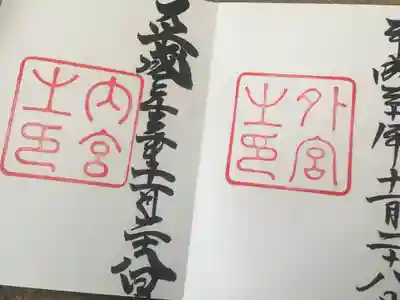 平成三十年十一月二十八日
外宮
之印
平成三十年十一月二十八日
内宮
之印